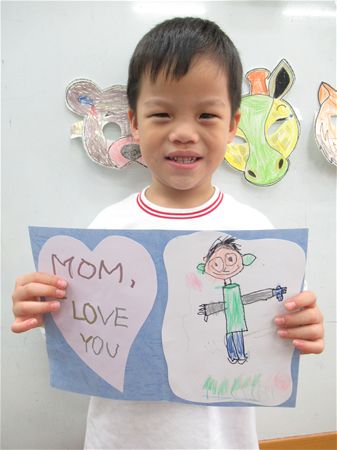 MOM,
I LOVE
YOU